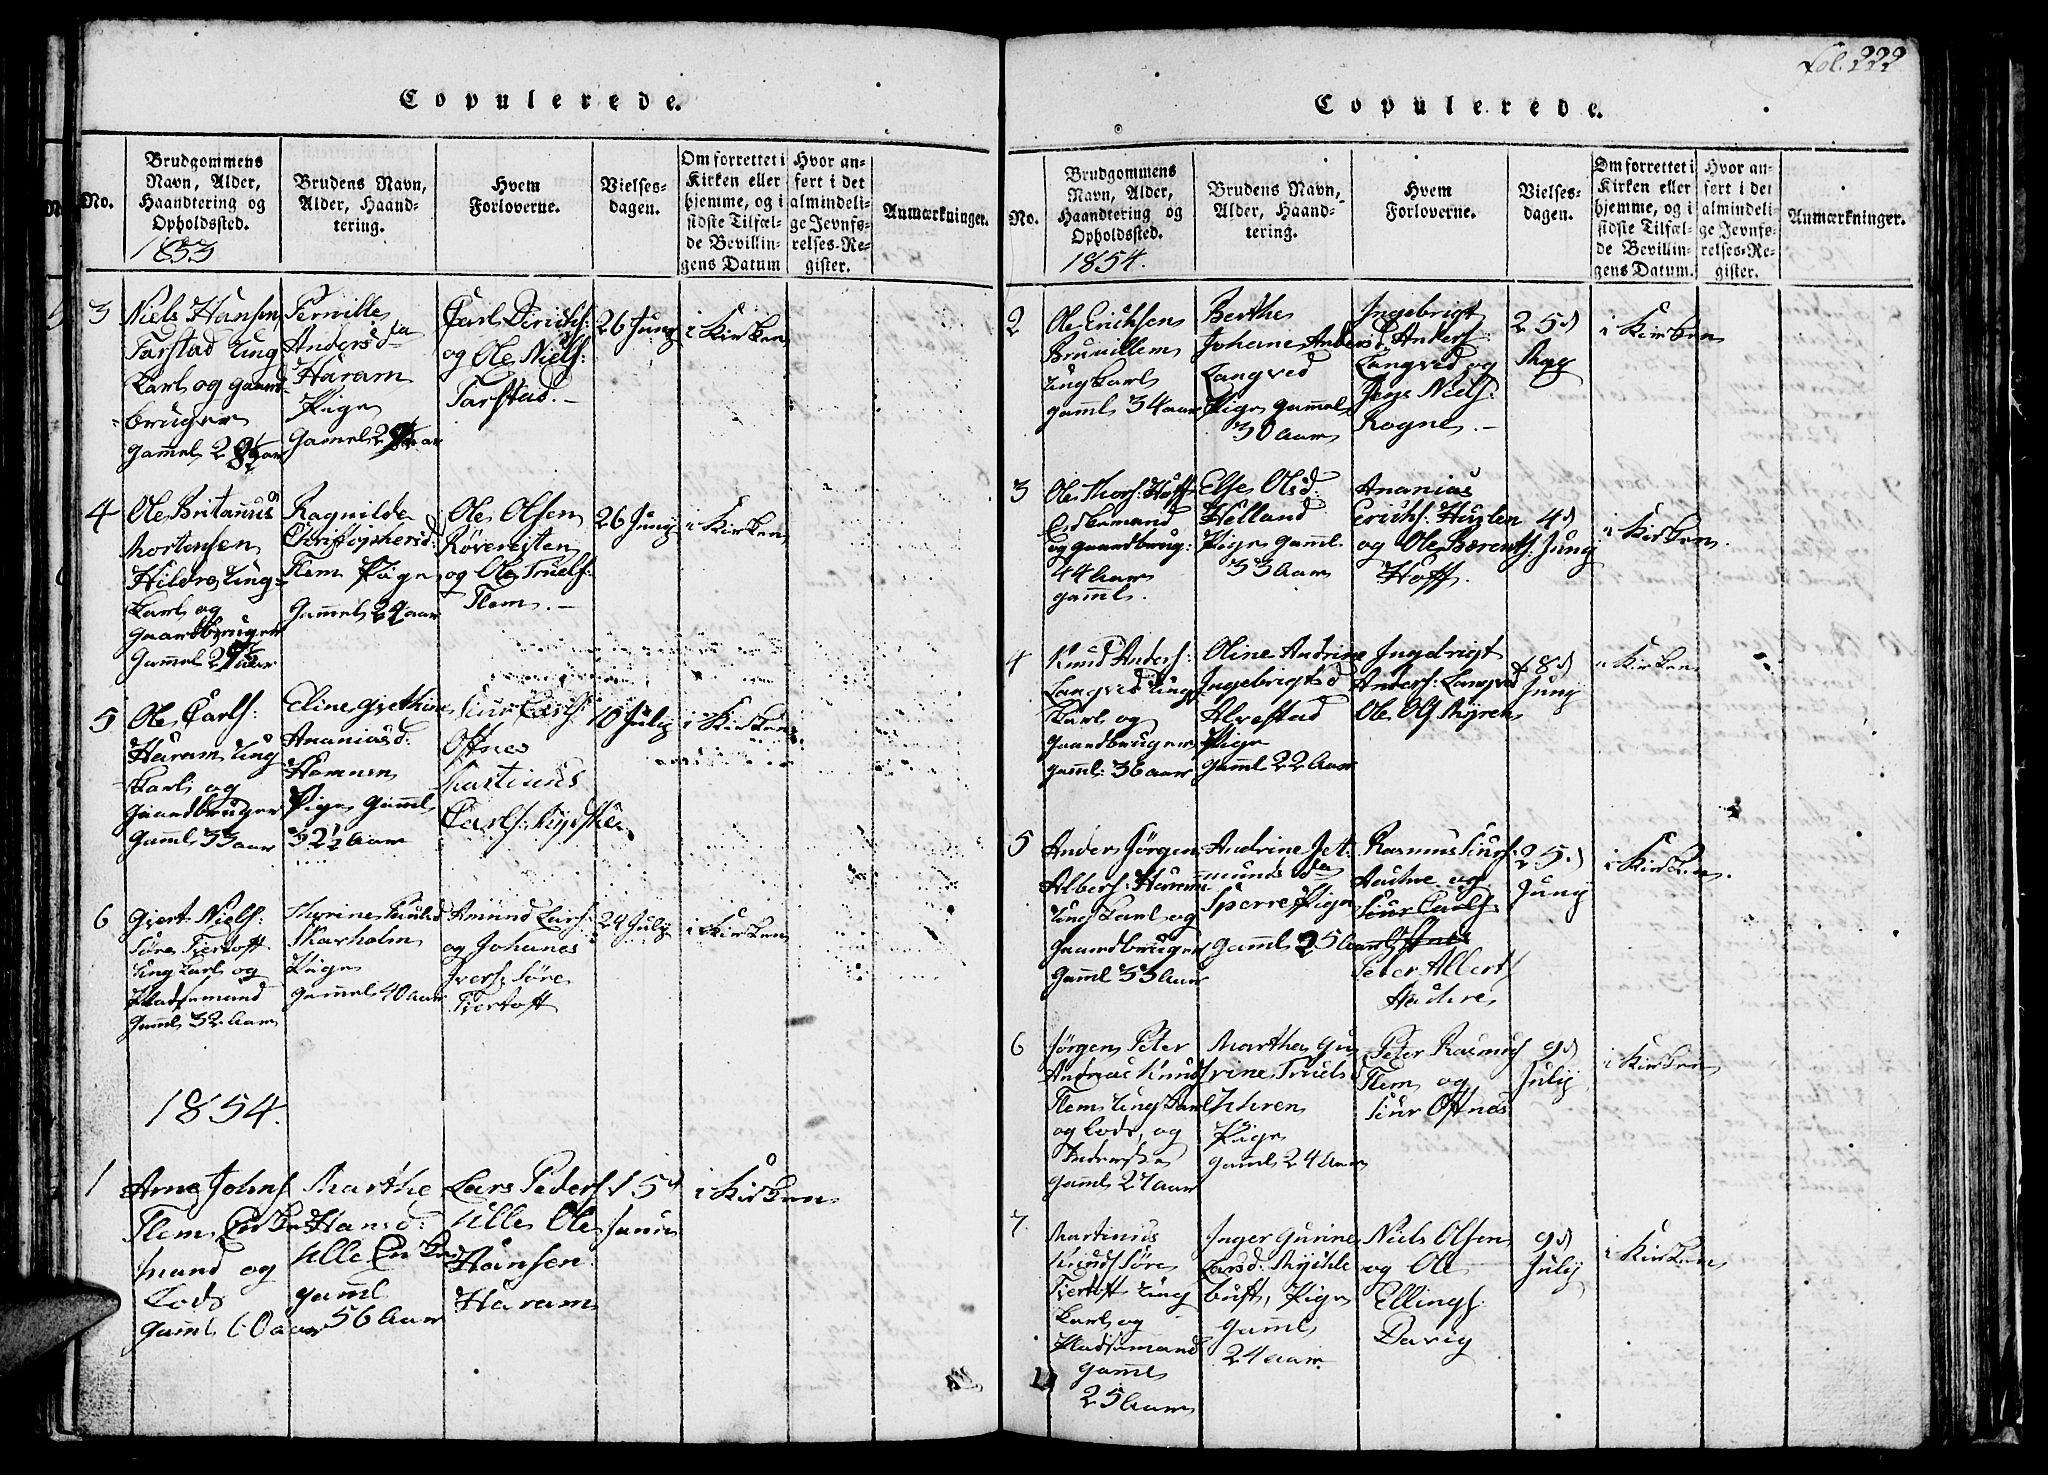 fol. 222
Copulerede.
No.
Brudgommens
Navn, Alder,
Haandtering og
Opholdssted.
1853
Brudens Navn,
Alder, Haand-
tering.
Hvem
Forloverne.
Vielses-
dagen.
Om forrettet i
Kirken eller
hjemme, og i
sidste Tilfæl-
de Bevillin-
gens Datum
Hvor an-
ført i det
almindeli-
ge Jevnfø-
relses-Re-
gister.
Anmærkninger.
3
Niels Hansen
Tarstad Ung
Karl og gaard
bruger
Gammel 28½ aar
Pernille
Andersda
Haram
Pige
Gamel
Carl Dirichs:
og Ole Niels:
Tarstad.
26 Juny
i Kirken
4
Ole Britannus
Mortensen
Hildre Ung-
karl og
Gaardbruger
Gammel
Ragnilde
Christophersd
Flem Pige
Gammel 29 aar
Ole Olsen
Røvereiten
og Ole Truels:
Flem.
26 Juny
i Kirken
5
Ole Carls:
Haram Ung
karl og
Gaardbruger
Gaml 33 aar
Eline Grethine
Ananiasd:
Hamnen
Pige gaml
32½ Aar
Siur Carls
Ofnes
Martinus
Carls:
10 July
i Kirken
6
Giert Niels:
Søre Fiertoft
Ungkarl og
Pladsemand
Gaml 32 Aar
Thrine Paulsd
Skarholm
Pige
gammel 40 aar
Amund Lars:
og Johanes
Ivers: Søre
Fiertoft
24 July
i Kirken
1854.
1
Arne Johns
Flem Enke
mand og
Lods
gaml 60 aar
Marthe
Hansd:
Ulle Enke
gaml
56 Aar
Lars Peders
Ulle Ole
Hansen
Haram
i Kirken
Copulerede.
No.
Brudgommens
Navn, Alder,
Haandtering og
Opholdssted.
1854.
Brudens Navn,
Alder, Haand-
tering.
Hvem
Forloverne.
Vielses-
dagen.
Om forrettet i
Kirken eller
hjemme, og i
sidste Tilfæl-
de Bevillin-
gens Datum.
Hvor an-
ført i det
almindeli-
ge Jevnfø-
relses-Re-
gister.
Anmærkninger.
2
Ole Erichsen
Bruvillem
Ungkarl
gaml 34 aar
Berthe
Johane Andersd
Langved
Pige gammel
30 Aar
Ingebrigt
Anders:
Langved og
Jens Niels:
Rogne.
25d
May
i Kirken
3
Ole Thors: Hoff
Enkemand
og gaardbrug:
44 Aar
gaml.
Else Olsd:
Helland
Pige gaml
33 Aar
Ananias
Erichs: Huslen
og Ole Bærents:
Hoff.
4d
Juny
i Kirken.
4
Knud Anders:
Langved Ung
karl og
gaardbruger
gaml: 36 aar
Oline Andrine
Ingebrigtsd
Alvestad
Pige
gaml 22 Aar
Ingebrigt
Anders: Langved
Ole Ols Myren
18d
Juny
i Kirken
5
Anders Jørgen
Alberts: Haram
Ungkarl og
Gaardbruger
Gaml 33 Aar
Andrine Jet-
munds da
Sperre Pige
gaml 25 Aar
Rasmus Siurs:
Hauhre og
Siur Carls
Ofnes
Peter Alberts
Hauhre
25d
Juny
i Kirken.
6
Jørgen Peter
Andreas Knuds
Flem Ungkarl
og Lods, og
gaml 27 aar
Marthe Gu
rine Truelsd
Uhren
Pige
gaml 24 Aar
Peter Rasmus
Flem og
Siur Ofnes
9d
July
i Kirken
7
Martinus
Knuds Søre
Fiertoft Ung
karl og
Pladsemand
gaml
25 Aar
Inger Gurine
Larsd: Mykle
bust, Pige
gaml
24 aar
Niels Olsen
og Ole
Ellings:
Davig
9d
July
i Kirken